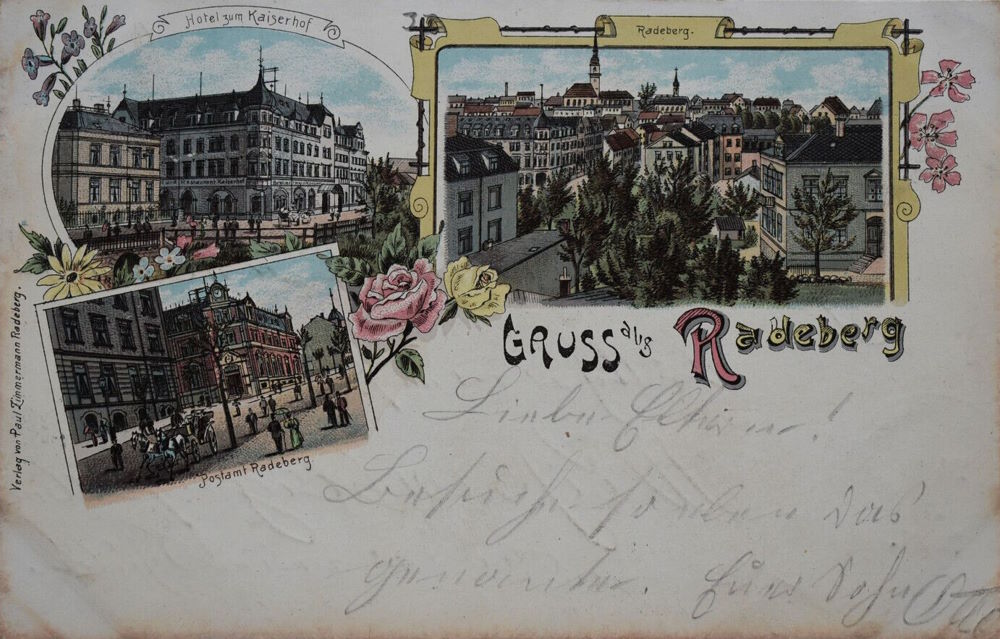 Hotel zum Kaiserhof
Radeberg.
Restaurant Kaiserhof
GRUSS aus Radeberg
Postamt Radeberg
Verlag von Paul Zimmermann Radeberg.
Liebe Eltern!
Besuche soeben das
genannte. Euer Sohn Otto